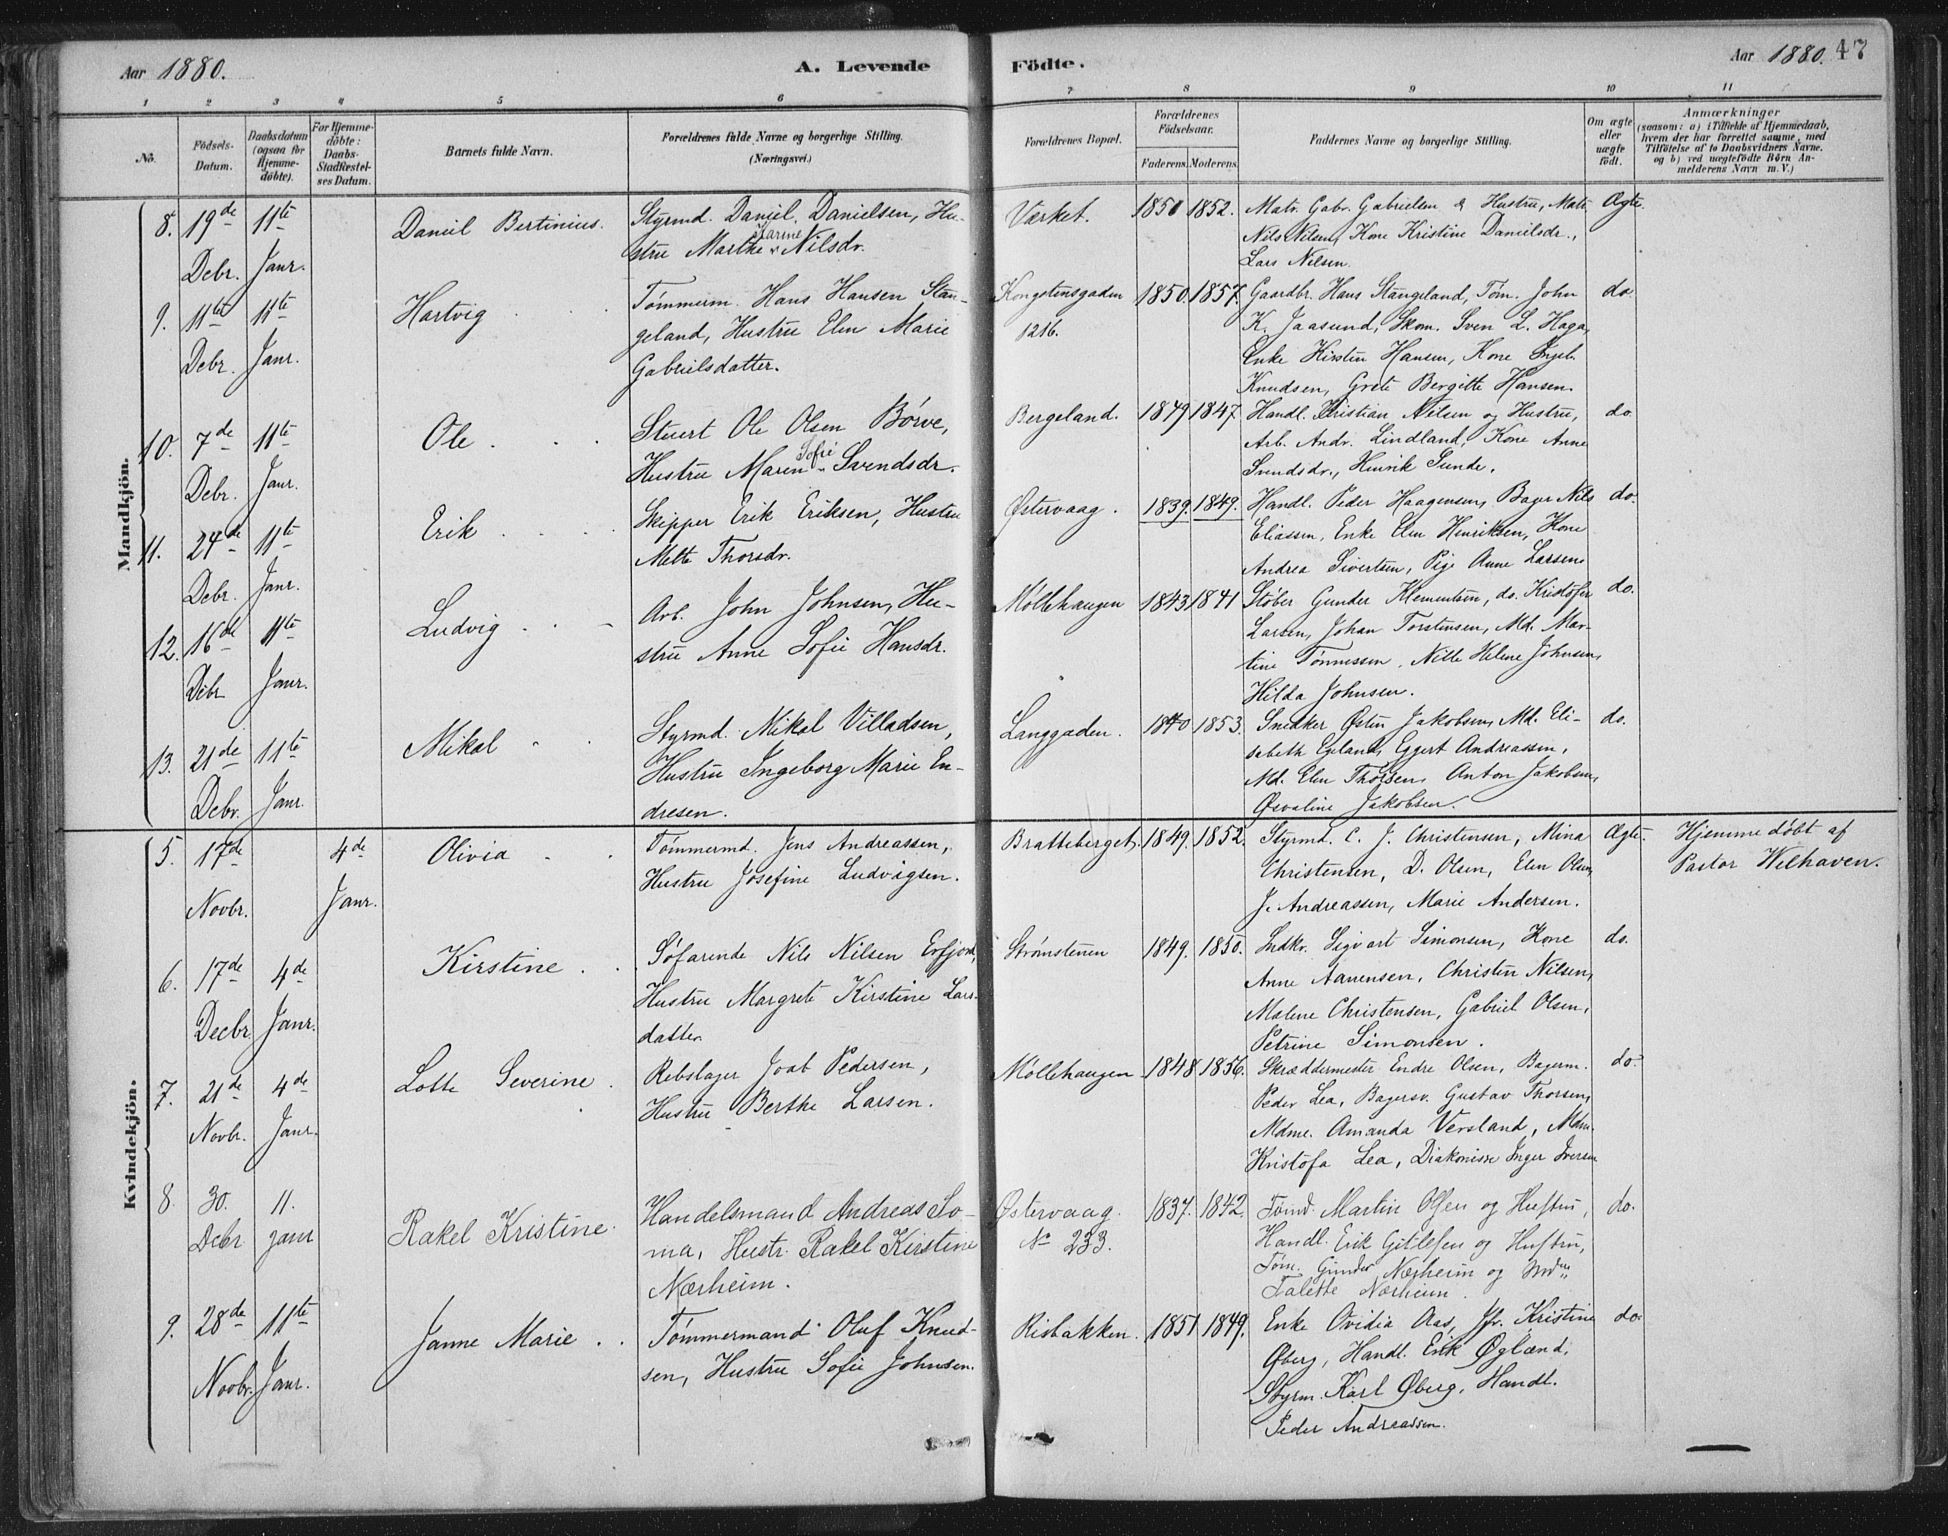 Aar 1880. A. Levende Födte. Aar 1880. 47
1 2 3 4 5 6 7 8 9 10 11
No. Födsels-Datum. Daabsdatum (ogsaa for Hjemmedöbte). For Hjemmedöbte: Daabs-Stadfæstelses Datum. Barnets fulde Navn. Forældrenes fulde Navne og borgerlige Stilling. (Næringsvei.) Forældrenes Bopæl. Forældrenes Födselsaar. Faderens. Moderens. Faddernes Navne og borgerlige Stilling. Om ægte eller uægte födt. Anmærkninger (saasom: a) i Tilfælde af Hjemmedaab, hvem der har forrettet samme, med Tilföielse af to Daabsvidners Navne, og b) ved uægtefödte Börn Anmelderens Navn m. V.)
Mandkjön.
8. 19de Debr. 11te Janr. Daniel Bertinius.
Styrmd. Daniel Danielsen, Hu-
stru Marthe Karine Nilsdr.
Værket. 1850 1852.
Matr. Gabr. Gabrielsen & Hustru, Matr.
Nils Nilsen, Kone Kristine Danielsdr.,
Lars Nilsen.
Ægte.
9. 11te Debr. 11te Janr. Hartvig
Tømmerm. Hans Hansen Stan-
geland, Hustru Elen Marie
Gabrielsdatter.
Kongstensgaden
1216.
1850. 1857.
Gaardbr. Hans Stangeland, Tøm. John
K. Jaasund, Skom. Sven L. Haga,
Enke Kirsten Hansen, Kone Ingeb.
Knudsen, Grete Bergitte Hansen.
do
10. 7de Debr. 11te Janr. Ole
Stuert Ole Olsen Børve,
Hustru Maren Sofie Svendsdr.
Bergeland. 1849 1847.
Handl. Kristian Nilsen og Hustru,
Arb. Andr. Lindland, Kone Anne
Svendsdr., Henrik Sunde.
do
11. 24de Debr. 11te Janr. Erik
Skipper Erik Eriksen, Hustru
Mette Thorsdr.
Østervaag. 1839. 1849.
Handl. Peder Haagensen, Bager Nils
Eliassen, Enke Elen Henriksen, Kone
Andrea Sivertsen, Pige Anne Larsen.
do.
12. 16de Debr 11te Janr. Ludvig
Arb. John Johnsen, Hu-
stru Anne Sofie Hansdr.
Møllehaugen 1843 1841
Støber Gunder Klementsen, do. Kristofer
Larsen, Johan Torstensen, Md. Mar-
tine Tønnessen, Nille Helene Johnsen,
Hilda Johnsen.
do.
13. 21de Debr. 11te Janr. Mikal
Styrmd. Mikal Villadsen,
Hustru Ingeborg Marie En-
dresen.
Langgaden. 1840 1853.
Snedker Østen Jakobsen, Md. Eli-
sabeth Egeland, Eggert Andreassen,
Md. Elen Thorsen, Anton Jakobsen,
Osvaline Jakobsen.
do.
Kvindekjön.
5. 17de Novbr. 4de Janr. Olivia
Tømmermd. Jens Andreassen,
Hustru Josefine Ludvigsen.
Bratteberget. 1849. 1852.
Styrmd. C. J. Christensen, Mina
Christensen, D. Olsen, Elen Olsen,
J. Andreassen, Marie Andersen.
Ægte.
Hjemmedöbt af
Pastor Welhaven.
6. 17de Decbr 4de Janr. Kirstine
Søfarende Nils Nilsen Erfjord,
Hustru Margrete Kirstine Lars-
datter
Strømstenen 1849. 1850.
Sndkr. Sigvart Simonsen, Kone
Anne Aanensen, Christen Nilsen,
Malene Christensen, Gabriel Olsen,
Petrine Simonsen.
do.
7. 21de Novbr. 4de Janr. Lotte Severine
Rebslager Joab Pedersen,
Hustru Berthe Larsen.
Møllehaugen 1848 1856.
Skræddermester Endre Olsen, Bagerm.
Peder Lea, Bagersv. Gustav Thorsen,
Mdme. Amanda Versland, Mdm.
Kristofa Lea, Diakonisse Inger Iversen
do.
8. 30. Debr 11. janr Rakel Kristine.
Handelsmand Andreas So-
ma, Hustr. Rakel Kirstine
Nærheim.
Østervaag.
No 233.
1837. 1842.
Tømd. Martin Olsen og Hustru,
Handl. Erik Gitlesen og Hustru,
Tøm. Gunder Nærheim og
Talette Nærheim.
do.
9. 28de Novbr. 11te Janr. Janne Marie
Tømmermand Oluf Knud-
sen, Hustru Sofie Johnsen.
Risbakken. 1851 1849.
Enke Ovidia Aas, Jfr. Kristine
Øberg, Handl. Erik Øglænd,
Styrm. Karl Øberg, Handl.
Peder Andreassen.
do.